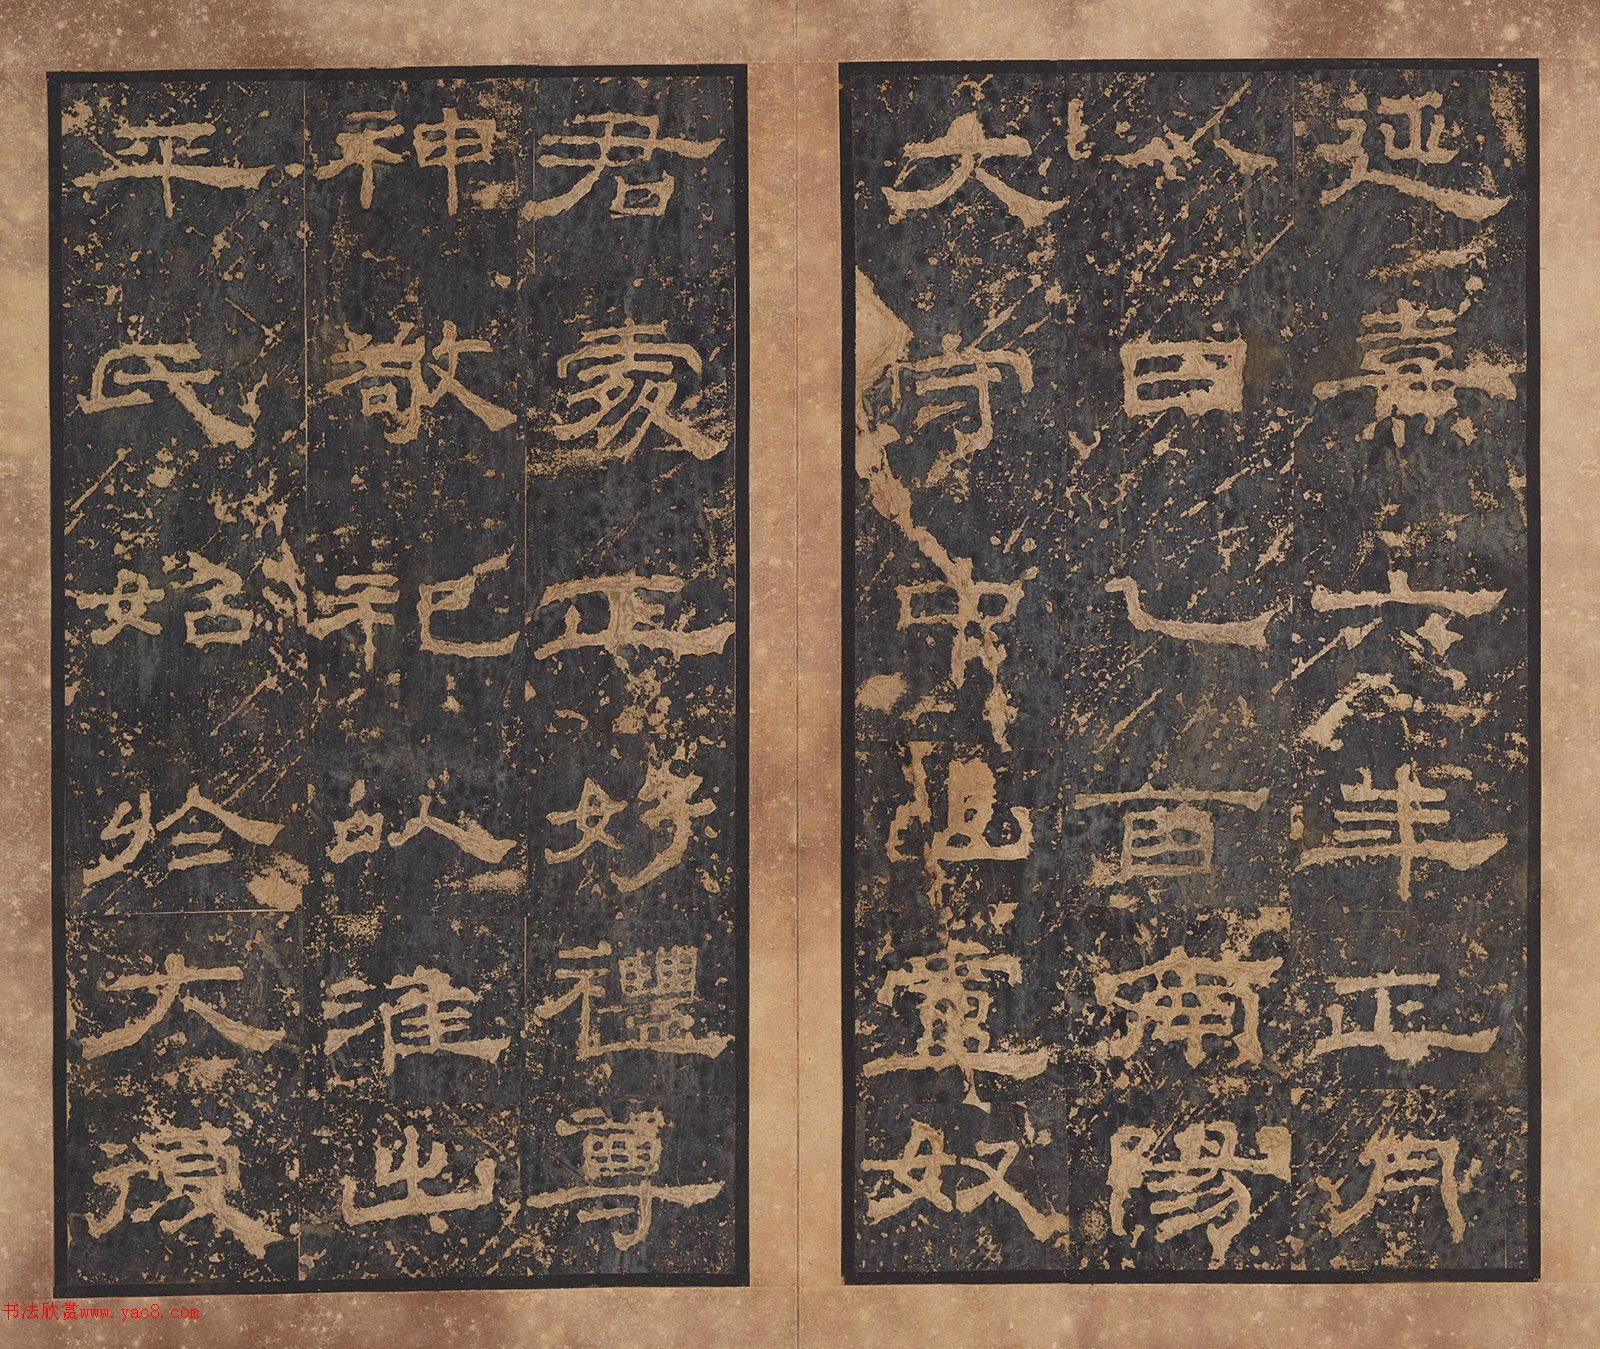 延熹六年正月
八日乙酉南陽
大守中山盧奴
君處正好禮尊
神敬祀以淮出
平氏始於大復
书法欣赏www.yac8.com